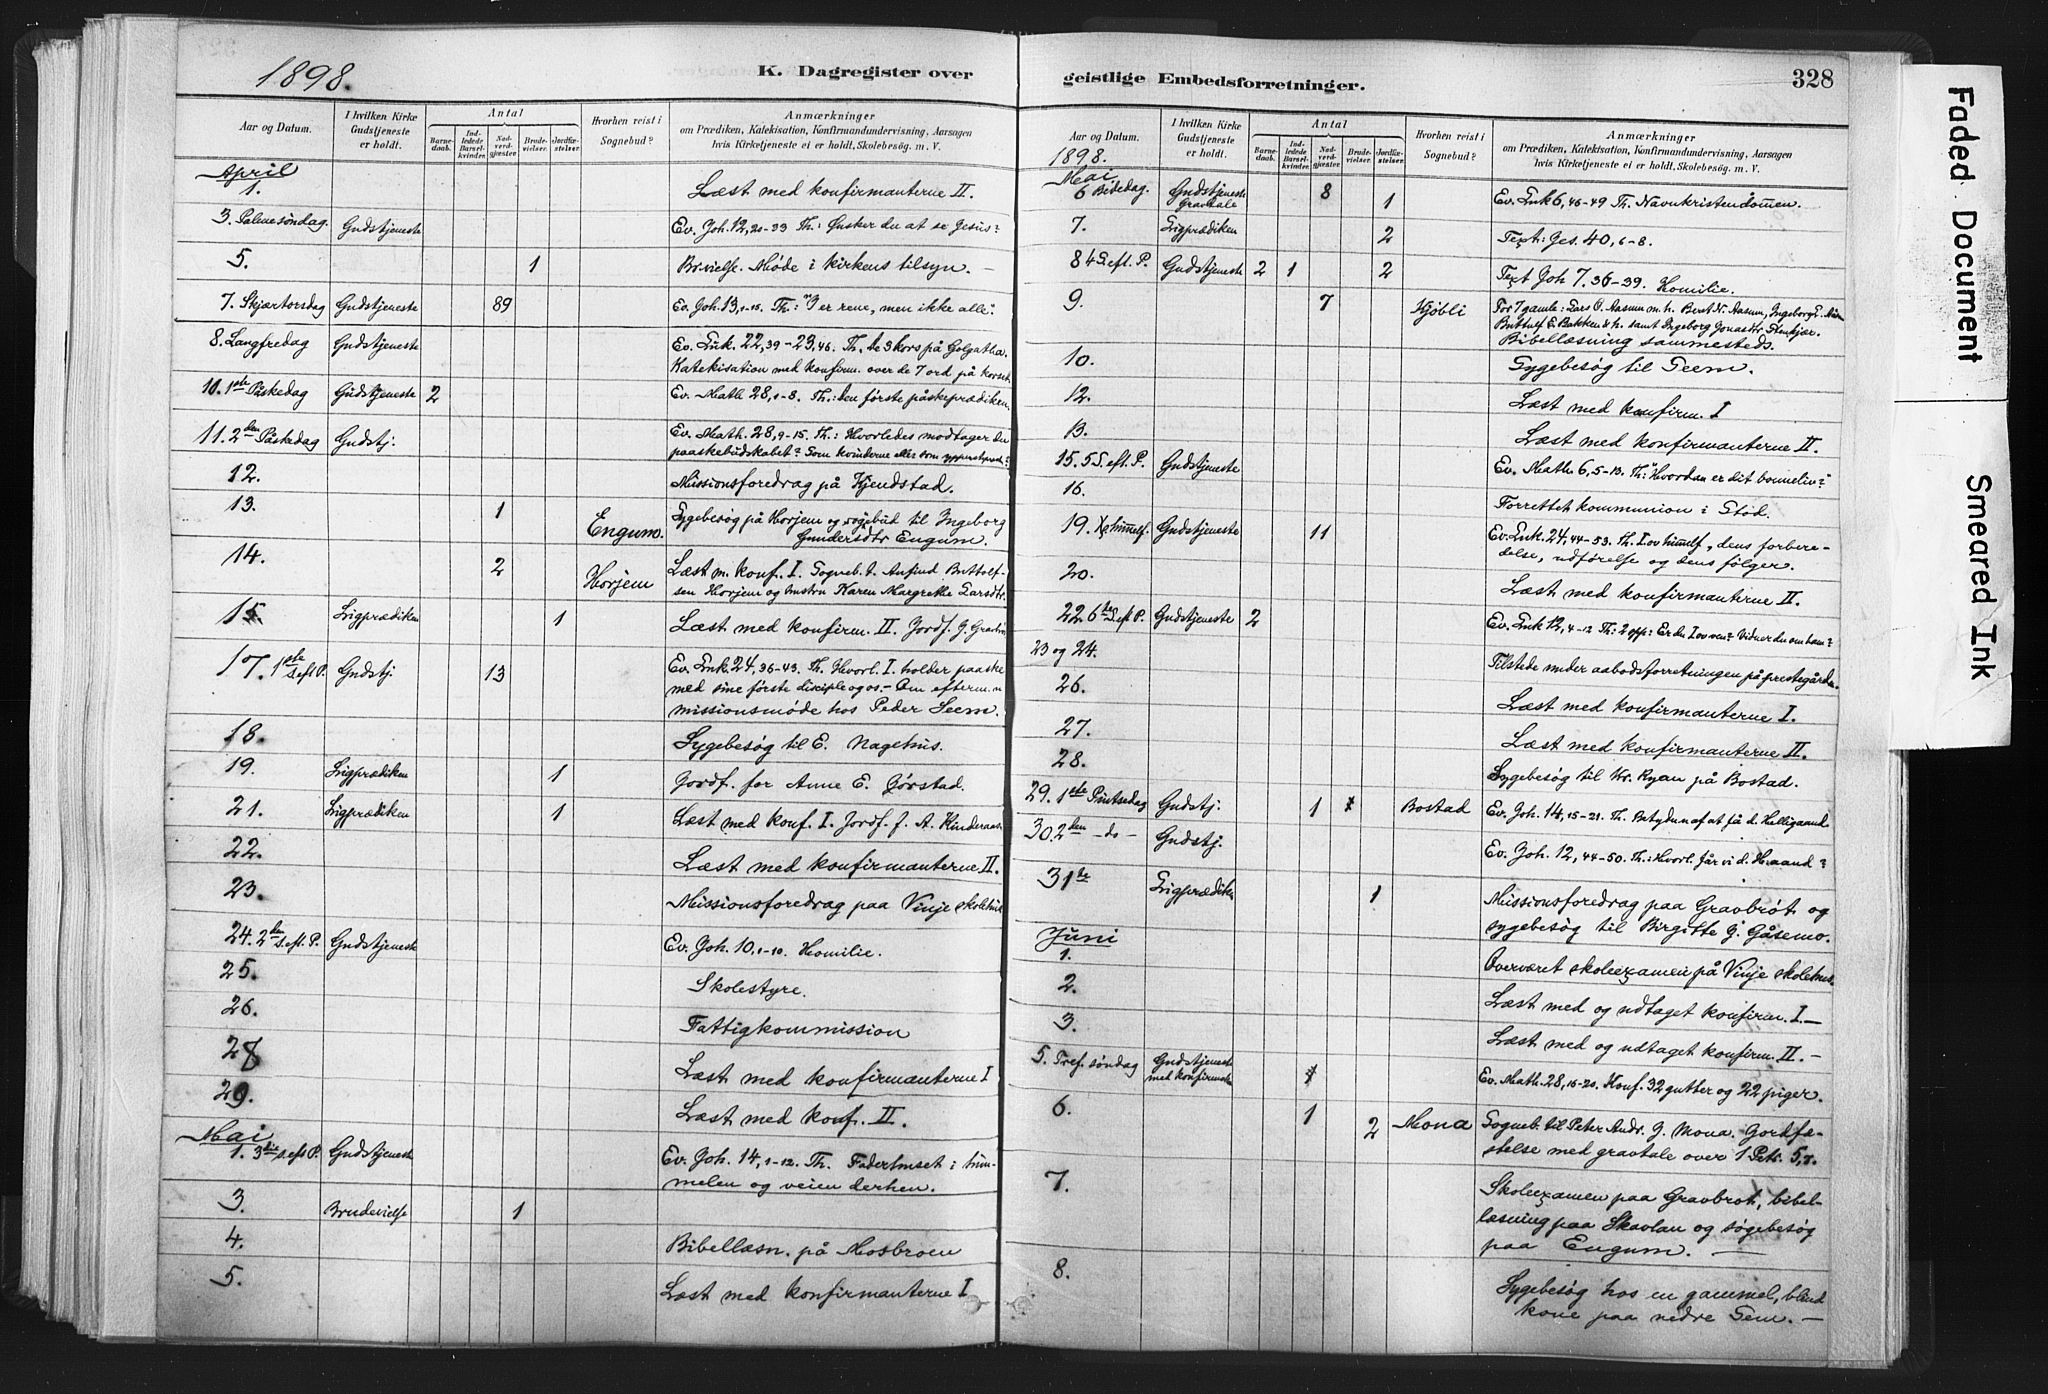 1898.
K. Dagregister over
Aar og Datum.
I hvilken Kirke Gudstjeneste er holdt.
Antal
Barnedaab.
Indledede Barselkvinder.
Nadverdgjæster
Brudevielser.
Jordfæstelser.
Hvorhen reist i Sognebud?
Anmærkninger
om Prædiken, Katekisation, Konfirmandundervisning, Aarsagen
hvis Kirketjeneste ei er holdt, Skolebesøg. m. V.
April
1. Læst med konfirmanterne II.
3. Palmesøndag. Gudstjeneste Ev. Joh. 12, 20-33 Th.: Ønsker du at se Jesus?
5. 1 Brvielse. Møde i kirkens tilsyn. —
7. Skjærtorsdag Gudstjeneste 89 Ev. Joh. 13, 1-15. Th.: "I er rene, men ikke alle".
8. Langfredag Gudstjeneste Ev. Luk. 22, 39 - 23, 46. Th. De 3 kors på Golgatha.
Katekisation med konfirm. over de 7 ord på korset
10. 1ste Påskedag Gudstjeneste 2 Ev. Math 28, 1-8. Th.: Den første påskeprædiken.
11. 2den Påskedag Gudstj: Ev. Math. 28, 9-15. Th.: Hvorledes modtager du
paaskebudskabet? Som kvinderne eller som ypperstprest.?
12. Missionsforedrag på Kjendstad.
13. 1 Engum. Sygebesøg på Horjem og sognebud til Ingeborg
Gundersdtr Engum.
14. 2 Horjem Læst m. konf. I. Sogneb. t. Anfind Buttolf-
sen Horjem og hustru Karen Margrethe Larsdtr.
15. Ligprædiken 1 Læst med konfirm. II. Jordf. J. Gravbrøt
17. 1ste s. eft P. Gudstj. 13 Ev. Luk. 24, 36-43. Th. Hvorl. J. holder paaske
med sine første disciple og os. – Om efterm.
missionsmøde hos Peder Seem.
18. Sygebesøg til E. Nagelhus.
19. Ligprædiken 1 Jordf. for Anne E. Gørstad.
21. Ligprædiken 1 Læst med konf. I. Jordf. f. A. Kinderaas
22. Læst med konfirmanterne II.
23. Missionsforedrag paa Vinje skolehus
24. 2den s. eft. P. Gudstjeneste Ev. Joh. 10, 1-10. Homilie.
25. Skolestyre.
26. Fattigkommission
28 Læst med konfirmanterne I
29. Læst med konf. II.
Mai
1. 3die s. eft P. Gudstjeneste Ev. Joh. 14, 1-12. Th. Faderhuset i him-
melen og veien derhen.
3. Brudevielse 1
4. Bibellæsn. på Mosbroen
5. Læst med konfirmanterne I
geistlige Embedsforretninger.
328
Aar og Datum.
I hvilken Kirke Gudstjeneste er holdt.
Antal
Barnedaab.
Indledede Barselkvinder.
Nadverdgjæster
Brudevielser.
Jordfæstelser.
Hvorhen reist i Sognebud?
Anmærkninger
om Prædiken, Katekisation, Konfirmandundervisning, Aarsagen
hvis Kirketjeneste ei er holdt, Skolebesøg. m. V.
1898.
Mai
6 Bededag. Gudstjeneste Gravtale 8 1 Ev. Luk 6, 46-49 Th. Navnkristendommen.
7. Ligprædiken 2 Text: Jes. 40, 6-8.
8 4 S. eft. P. Gudstjeneste 2 1 2 Text Joh 7. 36-39. Homilie.
9 7 Kjøbli For 7 gamle: Lars O. Aasum m. h. Beret N. Aasum, Ingeborg
Buttolf E. Bakken & h. samt Ingeborg Jonasdtr Stenkjær.
Bibellæsning sammesteds.
10. Sygebesøg til Seem.
12. Læst med konfirm. I
13. Læst med konfirmanterne II.
15. 5 S. eft. P. Gudstjeneste Ev. Math. 6, 5-13. Th: "Hvordan er dit bønneliv?"
16. Forrettet kommunion i Stod.
19. Kr himmelf. Gudstjeneste 11 Ev. Luk. 24, 44-53. Th. Jesu himmelf., dens forbere-
delse, udførelse og dens følger.
20. Læst med konfirmanterne II.
22. 6te S. eft P. Gudstjeneste 2 Ev. Luk 12, 4-12 Th: 2 spm: Er du Jesu ven? Vidner du om ham?
23 og 24. Tilstede under aabodsforretningen på prestegården.
26. Læst med konfirmanterne I.
27. Læst med konfirmanterne II.
28. Sygebesøg til Kr. Ryan på Bostad.
29. 1ste Pintsedag Gudstj: 1 Bostad Ev. Joh. 14, 15-21. Th. Betydn. af at få d. Helligaand
30. 2den – do – Gudstj. Ev. Joh. 12, 44-50. Th.: Hvorl. får vi d. H. aand?
31te Ligprædiken 1 Missionsforedrag paa Gravbrøt og
sygebesøg til Birgitte J. Gåsemo.
Juni
1. Overværet skoleexamen på Vinje skolehus.
2. Læst med og udtaget konfirm. I. –
3. Læst med og udtaget konfirm. II. –
5. Tref. søndag Gudstjeneste med konfirmation Ev. Math. 28, 16-20. Konf. 32 gutter og 22 piger.
6. 1 2 Mona Sogneb. til Peter Andr. J. Mona. Jordfæ-
stelse med gravtale over 1 Petr. 5, 7.
7. Skoleexamen paa Gravbrøt, bibel-
læsning paa Skavlan og sygebesøg
paa Engum. —
8. Sygebesøg hos en gammel, blind
kone paa nedre Sem. –
Faded Document
Smeared Ink